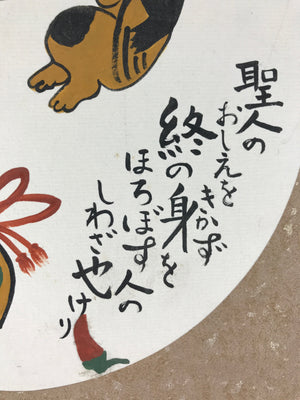 聖人の
おしえを
きかず
終の身を
ほろぼす人の
しわざ也けり